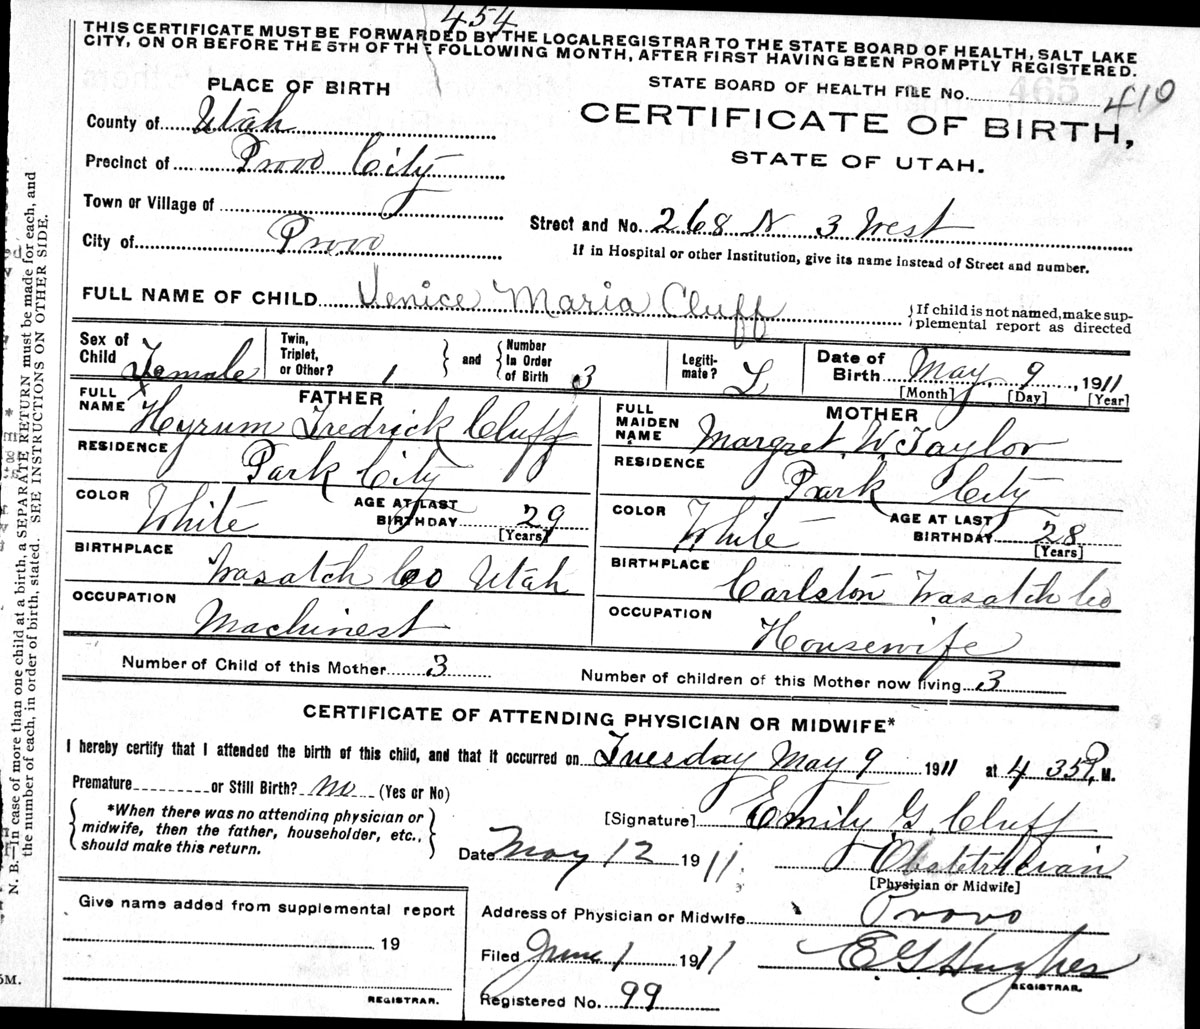 454
THIS CERTIFICATE MUST BE FORWARDED BY THE LOCALREGISTRAR TO THE STATE BOARD OF HEALTH, SALT LAKE
CITY, ON OR BEFORE THE 5TH OF THE FOLLOWING MONTH, AFTER FIRST HAVING BEEN PROMPTLY REGISTERED.
PLACE OF BIRTH
STATE BOARD OF HEALTH FILE No. 410
465
CERTIFICATE OF BIRTH,
STATE OF UTAH.
County of Utah
Precinct of Provo City
Town or Village of
City of Provo
Street and No. 268 N 3 West
If in Hospital or other Institution, give its name instead of Street and number.
FULL NAME OF CHILD Venice Maria Cluff
If child is not named, make sup-
plemental report as directed
Sex of Child Female
Twin, Triplet, or Other? 1
and
Number In Order of Birth 3
Legiti-mate? L
Date of Birth May 9, 1911
[Month] [Day] [Year]
FATHER
FULL NAME Hyrum Fredrick Cluff
RESIDENCE Park City
COLOR White
AGE AT LAST BIRTHDAY 29
[Years]
BIRTHPLACE Wasatch Co Utah
OCCUPATION Machinest
MOTHER
FULL MAIDEN NAME Margret W. Taylor
RESIDENCE Park City
COLOR White
AGE AT LAST BIRTHDAY 28
[Years]
BIRTHPLACE Carlston Wasatch Co
OCCUPATION Housewife
Number of Child of this Mother 3
Number of children of this Mother now living 3
CERTIFICATE OF ATTENDING PHYSICIAN OR MIDWIFE*
I hereby certify that I attended the birth of this child, and that it occurred on Tuesday May 9 1911 at 4 35 P. M.
Premature or Still Birth? no (Yes or No)
*When there was no attending physician or
midwife, then the father, householder, etc.,
should make this return.
[Signature] Emily G. Cluff
Date May 12 1911
Obstetrician
[Physician or Midwife]
Give name added from supplemental report
19
REGISTRAR.
Address of Physician or Midwife Provo
Filed June 1 1911
E G Hughes
REGISTRAR.
Registered No. 99
N. B.—In case of more than one child at a birth, a SEPARATE RETURN must be made for each, and
the number of each, in order of birth, stated. SEE INSTRUCTIONS ON OTHER SIDE.
5M.